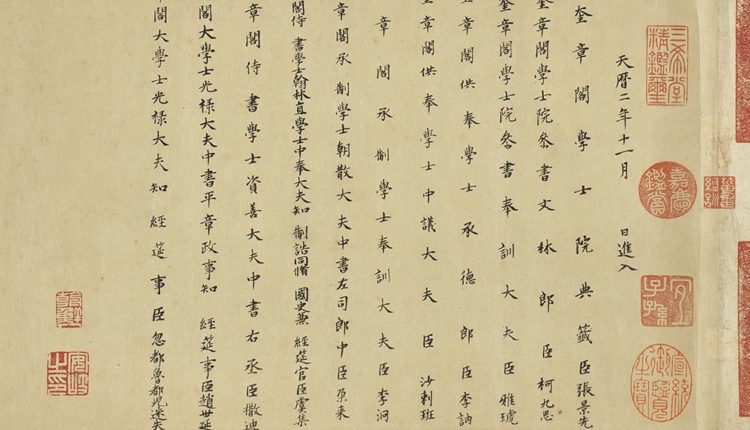 天曆二年十一月 日進入
奎章閣學士院典籤臣張景先
奎章閣學士院參書文林郎臣柯九思
奎章閣學士院參書奉訓大夫臣雅琥
奎章閣供奉學士承德郎臣李訥
奎章閣供奉學士中議大夫臣沙剌班
章閣承制學士奉訓大夫臣李泂
章閣承制學士朝散大夫中書左司郎中臣
閣侍書學士翰林直學士中奉大夫知制誥同脩國史兼經筵官臣虞集
章閣侍書學士資善大夫中書右丞臣撒迪
閣大學士光祿大夫中書平章政事知經筵事臣趙世延
閣大學士光祿大夫知經筵事臣忽都魯都兒迷失
三希堂精鑑璽
嘉慶鑑賞
宜子孫
宣統御覽之寶